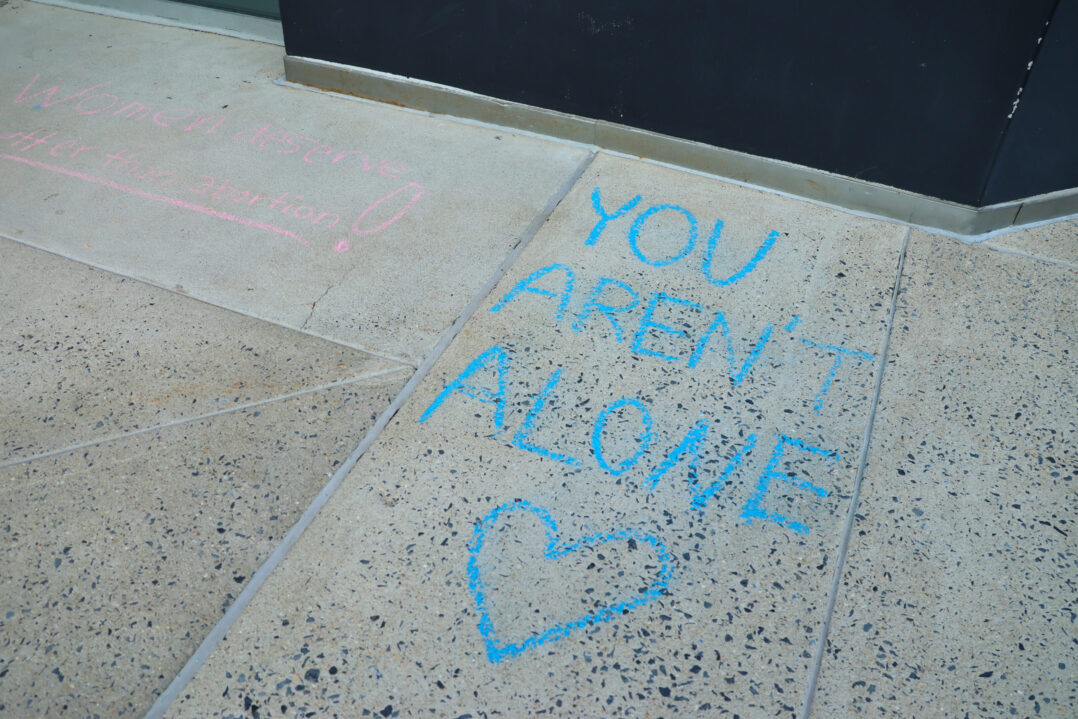 Women deserve
than abortion!
YOU
AREN'T
ALONE